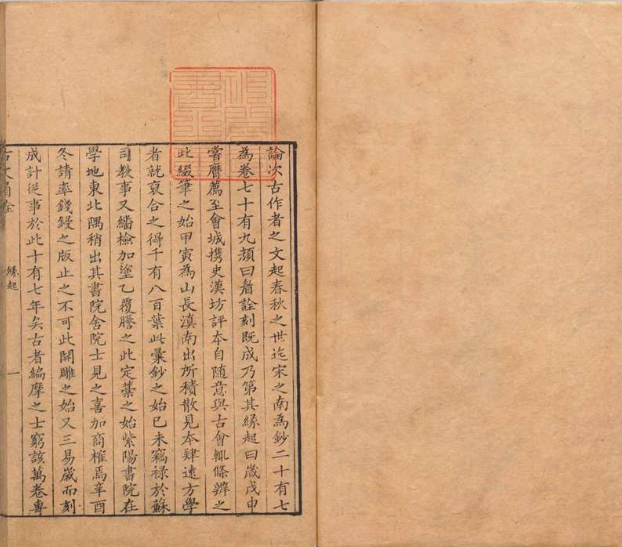 論次古作者之文起春秋之世迄宋之南為鈔二十有七
為卷七十有九顏曰睂詮刻既成乃第其緣起曰歲戊申
嘗膺薦至會城携史漢坊評本自随意與古會輒條辨之
此綴筆之始甲寅為山長滇南出所積散見本肄遠方學
者就裒合之得千有八百葉此彙鈔之始已未竊祿於蘇
司教事又繙檢加塗乙覆謄之此定藁之始紫陽書院在
學地東北隅稍出其書院舍院士見之喜加商榷焉辛酉
冬請率錢鋟之版止之不可此開雕之始又三易歲而刻
成計從事於此十有七年矣古者編摩之士窮該萬卷專
古文睂詮 緣起 一